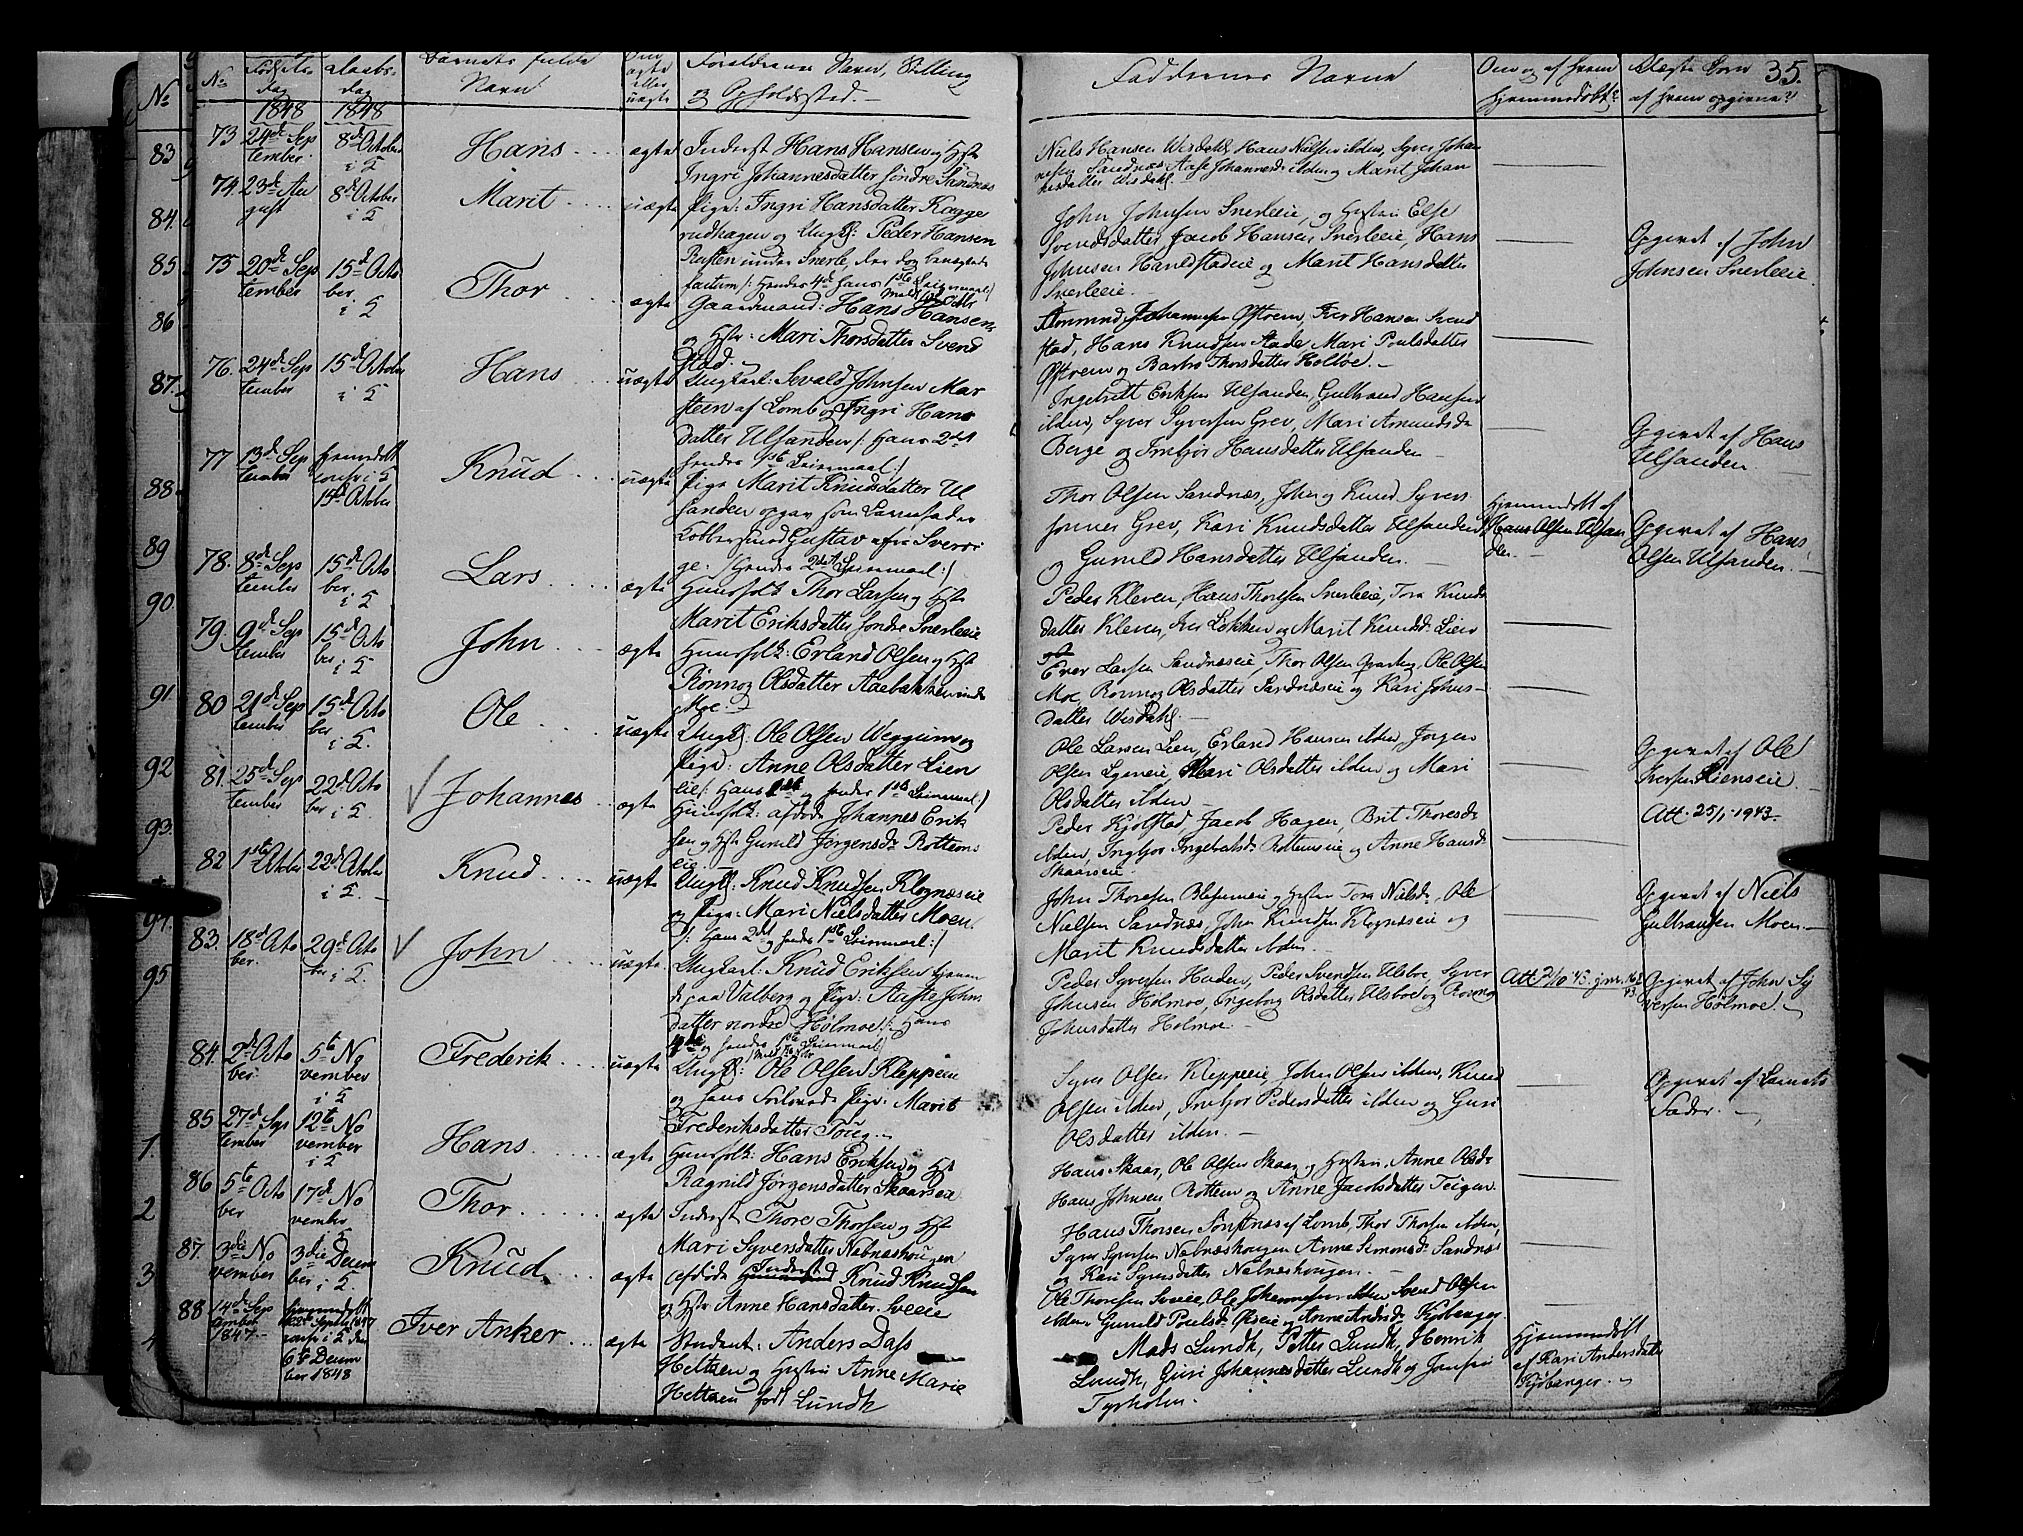 35.
No Fødsels- dag Daabs- dag Barnets fulde Navn Om ægte eller uægte Forældrenes Navn, Stilling og Opholdssted.
Faddernes Navne Om og af hvem hjemmedøbt? Uægte Børn af hvem opgivne?
1848 1848
73 24de September 8de October i K Hans ægte Inderst Hans Hansen og Hst
Ingri Johannesdatter søndre Sandnæs
Niels Hansen Wisdahl, Hans Nielsen ibden, Syver Johan
nesen Sandnæs, Aase Johannesd. ibden og Marit Johan
nesdatter Wisdahl.
74. 23de August 8de October Marit uægte Pige: Ingri Hansdatter Kagge
rudhagen og Ungk: Peder Hansen
Rusten under Snerle, der dog benægtede
factum /: hendes 4de hans 1ste Leiermaal :/
John Johnsen Snerleeie, og Hustru Else
Svendsdatter, Jacob Hansen Snerleeie, Hans
Johnsen Harildstadeie og Marit Hansdatter
Snerleeie.
Opgivet af John
Johnsen Snerleeie
75 20de September 15de October Thor ægte Gaardmand: Hans Hansen
og Hstr: Mari Thorsdatter Svend
stad.
Ammund Johannesen Offtrem, Iver Hansen Svend
stad, Hans Knudsen Stade, Mari Poulsdatter
Offtrem og Barbro Thorsdatter Holtøe.
76. 24de September 15de October Hans uægte Ungkarl: Sevald Johnsen Mar
steen af Lomb og Ingri Hans
datter Ulfsanden /: Hans 2det
hendes 1ste Leiermaal :/
Ingebrett Eriksen Ulfsanden, Gulbrand Hansen
ibden, Syver Syversen Grev, Mari Amundsda
Berge og Imbjør Hansdatter Ulfsanden
Opgivet af Hans
Ulfsanden.
77 13de September hjemmedøbt 15de October Knud uægte Pige Marit Knudsdatter Ul
sanden opgav som Barnefader
Kobbersmed Gustav afra Sverri
ge: /: hendes 2det Leiermaal :/
Thor Olsen Sandnæs, John og Knud Syver
sønner Grev, Kari Knudsdatter Ulfsanden
og Gunild Hansdatter Ulfsanden.
Hjemmedøbt af
Hans Olsen Ulfsan
den.
Opgivet af Hans
Olsen Ulfsanden.
78. 8de September 15de October Lars ægte Huusfolk: Thor Larsen og Hst
Marit Eriksdatter søndre Snerleeie
Peder Kleven, Hans Thoresen Snerleeie, Tora Knuds
datter Kleven, Iver Løkken og Marit Knudsd. Lien
79. 9de September 15de October John ægte Huusfolk: Erland Olsen og Hst
Rønnog Olsdatter Aaebakken under
Moe.
Ever Larsen Sandnæseie, Thor Olsen, Ole Olsen
Moe, Rønnog Olsdatter Sandnæseie og Kari Johns
datter Wisdahl.
80 21de September 15de October Ole uægte Ungk: Ole Olsen Weggum og
Pige: Anne Olsdatter Lien
eie /: Hans 1ste og hendes 1ste Leiermaal :/
Ole Larsen Lien, Erland Hansen ibden, Jørgen
Olsen, Mari Olsdatter ibden og Mari
Olsdatter ibden
Opgivet af Ole
Iversen Lienseie.
81. 25de September 22de October Johannes ægte Huusfolk: afdøde Johannes Erik
sen og Hst Gunild Jørgensd. Rottems
eie
Peder Kjølstad, Jacob Hagen, Brit Thoresd.
ibden, Ingbjør Ingebretsd. Rottemseie og Anne Hansd.
Skaarseie.
Att. 25/1-1943.
82 1ste October 22de October Knud uægte Ungk: Knud Knudsen Klognæseie
og Pige: Mari Nielsdatter Moen.
/: Hans 2det og hendes 1ste Leiermaal :/
John Thoresen og Hustru Tora Nielsd., Ole
Nielsen Sandnæs, John Knudsen Klognæseie og
Marit Knudsdatter ibden.
Opgivet af Niels
Gulbrandsen Moen.
83. 18de October 29de October John uægte Ungkarl: Knud Eriksen hjem
de paa Valberg og Pige: Aaste Johns
datter nordre Hølmoe /: Hans
og hendes 1ste Leiermaal :/
Peder Syversen Haden, Peder Svendsen Ulsboe, Syver
Johnsen Hølmoe, Ingeborg Olsdatter Ulsboe og Rønnog
Johnsdatter Holmoe.
Opgivet af John Sy
versen Hølmoe.
84. 2de October 5te November Frederik uægte Ungk: Ole Olsen Kleppeeie
og hans Forlovede Pige: Marit
Frederiksdatter
Syver Olsen Kleppeeie, John Olsen ibden, Knud
Olsen ibden, Imbjør Pedersdatter ibden og Guri
Olsdatter ibden.
Opgivet af Barnets
Fader.
85 27de September 12te November Hans ægte Huusfolk: Hans Eriksen og Hst
Ragnild Jørgensdatter Skaarseie
Hans Skaar, Ole Olsen Skaar og Hustru Anne Olsd.
Hans Johnsen Rottem og Anne Jacobsdatter Teigen
86 5te October 17de November Thor ægte Inderst Thore Thorsen og Hst
Mari Syversdatter Nabnæshougen
Hans Thorsen af Lomb, Thor Thorsen ibden,
Syver Syversen Nabnæshougen, Anne Simonsd. Sandnæs
og Kari Syversdatter Nabnæshougen.
87. 3die November 3die December Knud ægte Afdøde Inderst Knud Knudsen
og Hstr Anne Hansdatter Sveeie
Ole Thoresen Sveeie, Ole Johannesen ibden, Svend Olsen
ibden, Gunild Poulsd. og Anne Andersd. Kjøbanger
88 14de September 1847 hjemmedøbt 6te December 1848 Iver Anker ægte Student: Anders Dass
Heltzen og Hustru Anne Marie
Heltzen født Lundh
Mads Lundh, Petter Lundh, Henrik
Lundh, Guri Johannesdatter Lundh og Jomfru
Tyrholm.
Hjemmedøbt
af Kari Andersdatter
Kjøbanger.
No
83
84.
85
86
87.
88
89
90.
91.
92
93.
94.
95
1
2
3
4